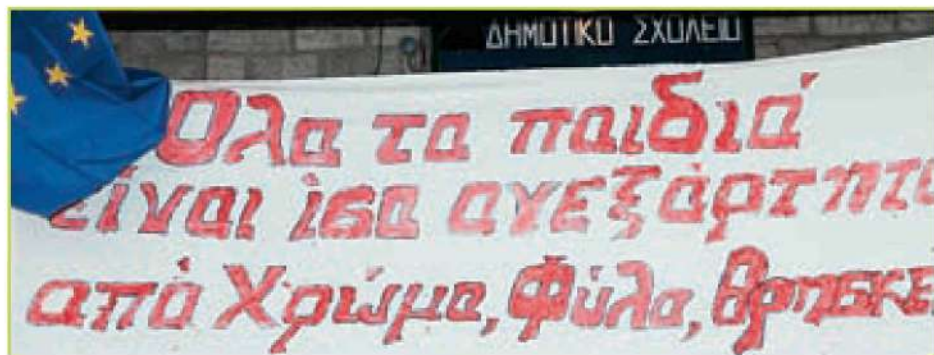 ΔΗΜΟΤΙΚΟ ΣΧΟΛΕΙΟ
Όλα τα παιδιά
είναι ίσα ανεξάρτητα
από Χρώμα, Φύλα, θρησκε